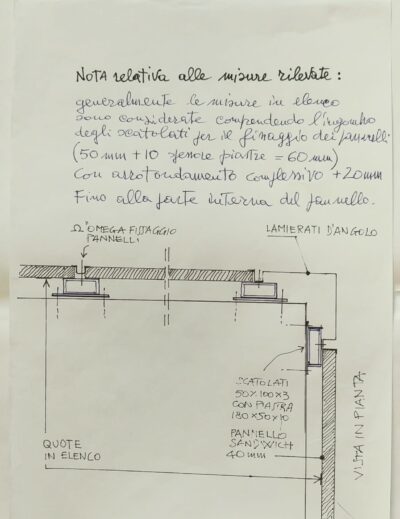 NOTA relativa alle misure rilevate:
generalmente le misure in elenco
sono considerate comprendendo l'ingombro
degli scatolati per il fissaggio dei pannelli
(50 mm + 10 spessore piastre = 60 mm)
Con arrotondamento complessivo +20mm
Fino alla parte interna del pannello.
Ω "OMEGA FISSAGGIO
PANNELLI
LAMIERATI D'ANGOLO
SCATOLATI
50X100X3
CON PIASTRA
180X50X10
PANNELLO
SANDWICH
40 mm
QUOTE
IN ELENCO
VISTA IN PIANTA